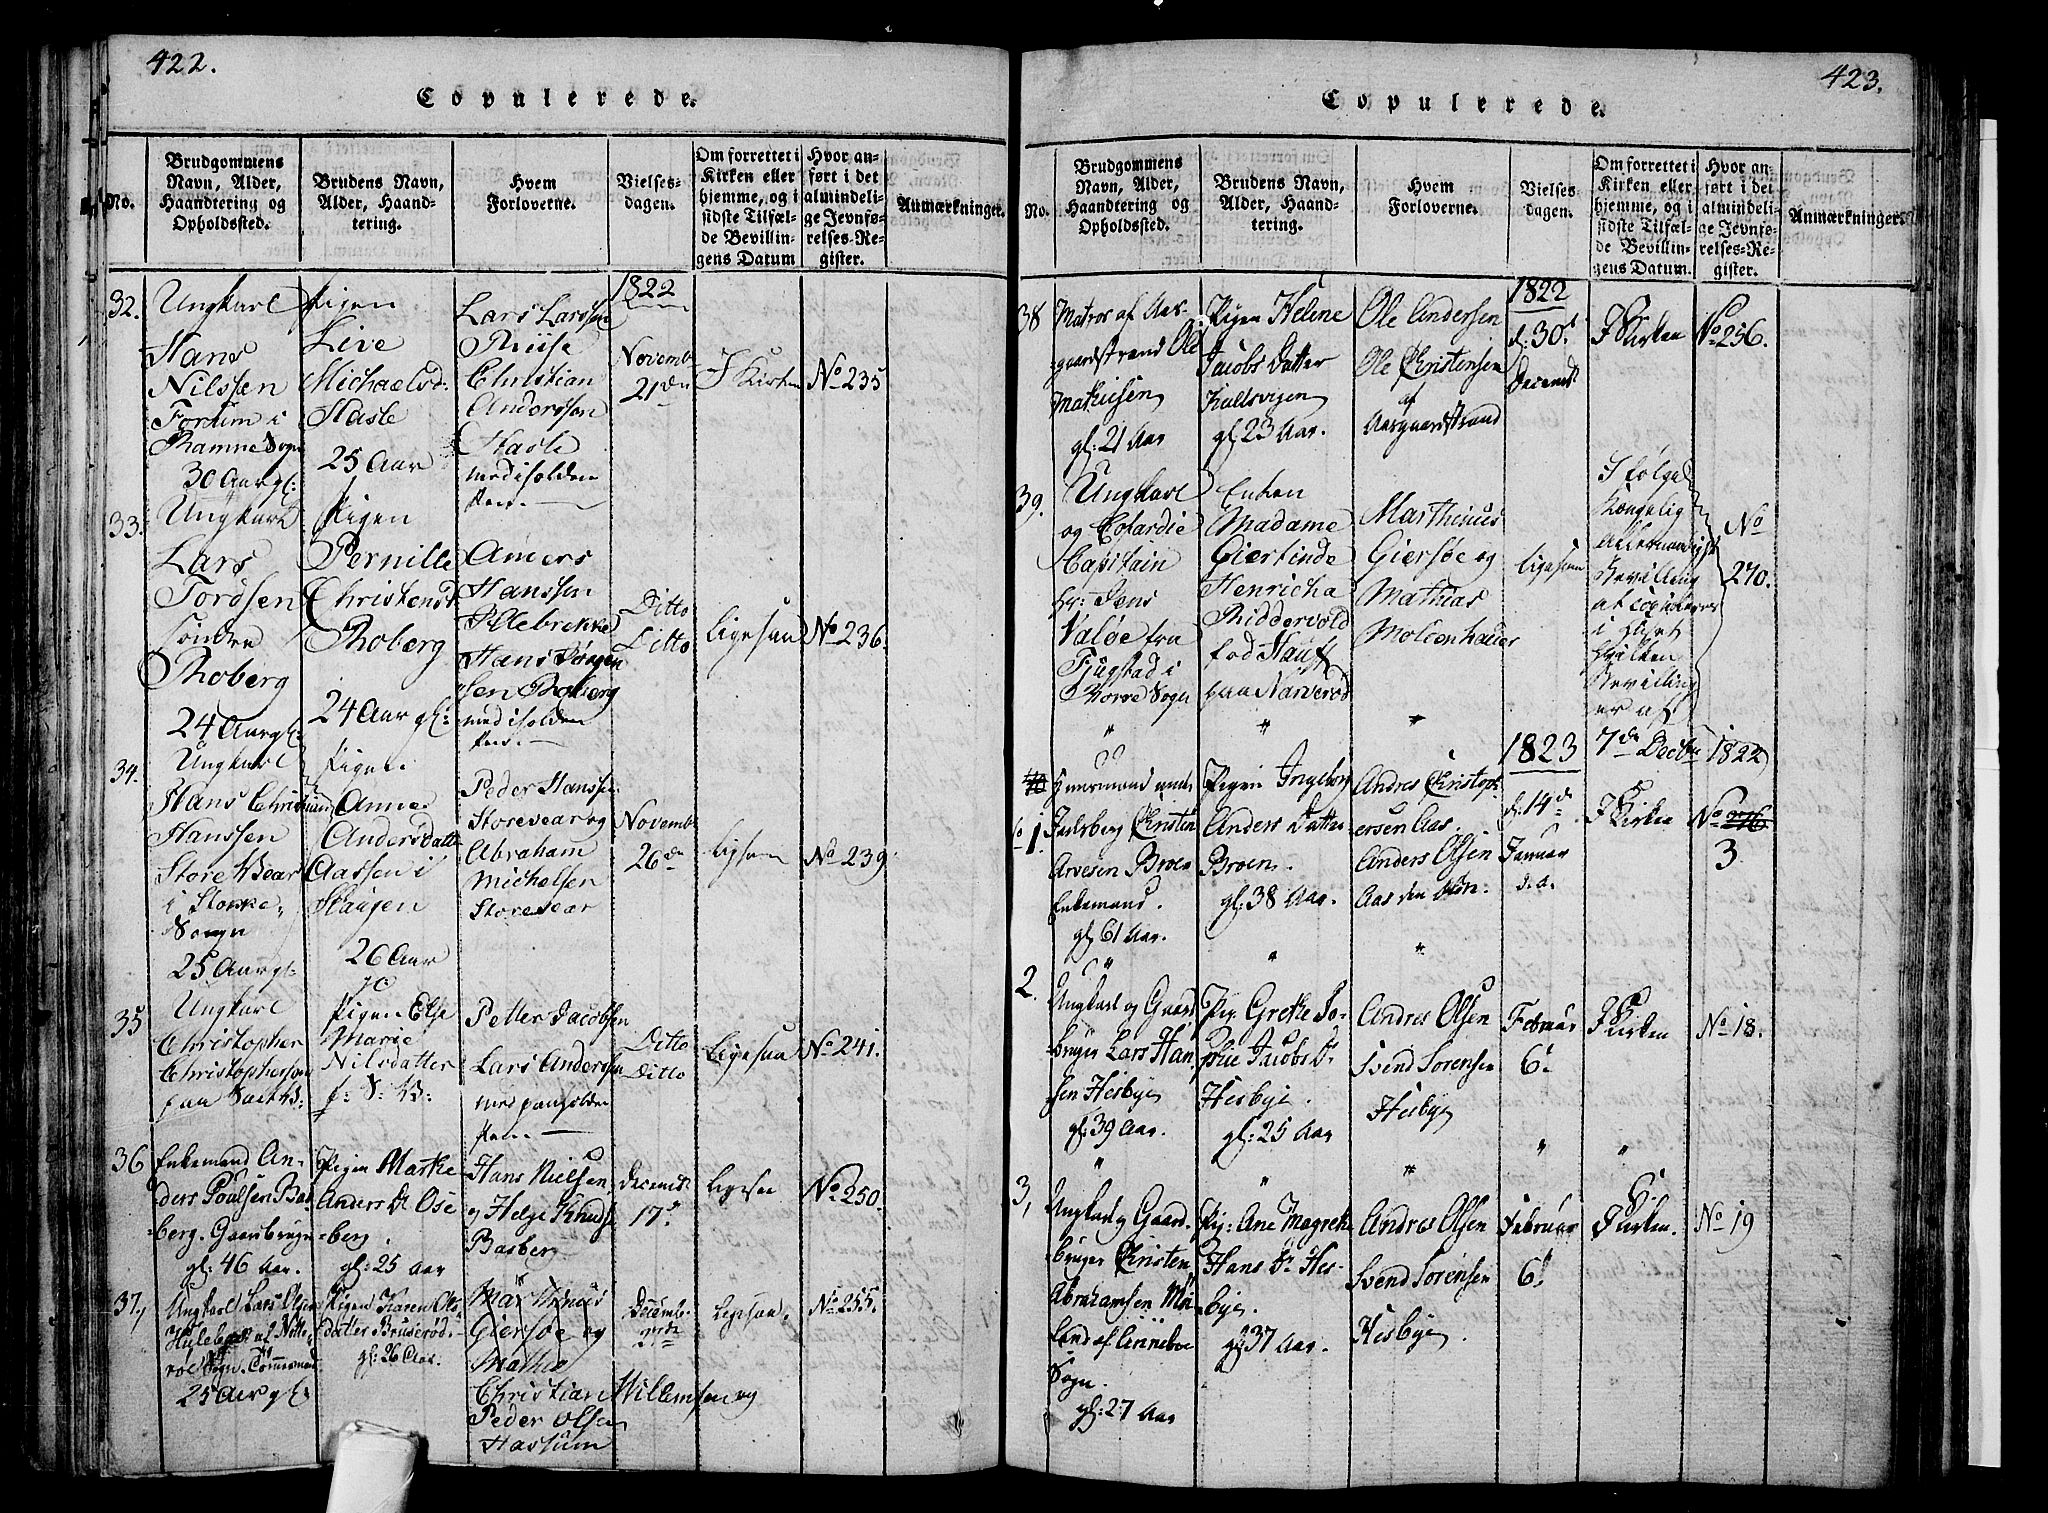 422.
Copulerede.
No.
Brudgommens
Navn, Alder,
Haandtering og
Opholdssted.
Brudens Navn,
Alder, Haand-
tering.
Hvem
Forloverne.
Vielses-
dagen.
Om forrettet i
Kirken eller
hjemme, og i
sidste Tilfæl-
de Bevillin-
gens Datum
Hvor an-
ført i det
almindeli-
ge Jevnfø-
relses-Re-
gister.
Anmærkninger.
32.
Ungkarl
Hans
Nilssen
Fortum i
Ramne Sogn
30 Aar gl:
Pigen
Live
Michaelsd:
Hasle
25 Aar
Lars Larssen
Riise
Christian
Anderssen
Hasle
med iholden
Pen.
1822
Novemb
21de
I Kirken
No 235
33.
Ungkarl
Lars
Tordsen
Søndre
Roberg
24 Aar gl:
Pigen
Pernille
Christensd
Roberg
24 Aar gl:
Anders
Hanssen
Hillebrekke
Hans Jørgen
sen Roberg
med iholden
Pen.
Ditto
Ditto
ligesaa
No 236
34.
Ungkarl
Hans Christian
Hanssen
Store Wear
i Stokke
Sogn
25 Aar gl:
Pigen
Anne
Andersdatter
Aassen i
Slaugen
26 Aar
Peder Hanssen
Storevear og
Abraham
Michelsen
Storevear
Novemb
26de
No 239
35
Ungkarl
Christopher
Christophersen
paa
Pigen Else
Marie
Nilsdatter
Petter Jacobsen
Lars Andersen
med paaholden
Pen.
Ditto
Ditto
ligesaa
No 241.
36
Enkemand An-
ders Poulsen Bas-
berg. Gaardbruger
gl: 46 Aar.
Pigen Marthe
Anders Dr Ose
berg.
gl: 25 Aar
Hans Nielsen
og Helge Knuds
Basberg
Decembr
17d
ligesaa
No 250.
37,
Ungkarl Lars Olsen
af Nøtte-
roe Sogn.
25 Aar gl:
Pigen Karen Ols
datter Bruserød.
gl: 26 Aar.
Marthinus
Giersøe og
Mathis
Christian Willemsen og
Peder Olsen
Hassum
Decemb
27de
ligesaa.
No 255.
423.
Copulerede.
No.
Brudgommens
Navn, Alder,
Haandtering og
Opholdssted.
Brudens Navn,
Alder, Haand-
tering.
Hvem
Forloverne.
Vielses-
dagen.
Om forrettet i
Kirken eller
hjemme, og i
sidste Tilfæl-
de Bevillin-
gens Datum.
Hvor an-
ført i det
almindeli-
ge Jevnfø-
relses-Re-
gister.
Anmærkninger.
38
Matros af Aas-
gaardstrand Ole
Mathisen
gl: 21 Aar
Pigen Helene
Jacobs Datter
gl: 23 Aar.
Ole Andersen
Ole Christensen
af
Aasgaardstrand
1822
d: 30t
Decemb
I Kirken
No 256.
39.
Ungkarl
og Cofardie
Capitain
Hr: Jens
Valøe fra
Fjugstad i
Borre Sogn
Enken
Madame
Giertinde
Henricha
Riddervold
fød Hauff
paa Narverød
Marthinus
Giersøe og
Mathias
Moldenhauer
ligesaa
I følge
Kongelig
Allernaadigst
Bevilling
at copuleres
i Huset
hvilken
Bevilling
er af
7de Decbr 1822
No
270.
1823
40
No 1.
Huusmand under
Jarlsberg Christen
Arvesen Broen
Enkemand.
gl: 61 Aar.
Pigen Ingeborg
Anders Datter
Broen.
gl: 38 Aar.
Andres Christoph-
ersen Aas.
Anders Olsen
Aas den Øvr.
d: 14de
Januar
d. A.
I Kirken
No 276
3
2.
Ungkarl og Gaard-
bruger Lars Han-
sen Hesbye
gl: 39 Aar.
Pig: Grethe So-
phie Jacobs Dr
Hesbye.
gl: 25 Aar
Andres Olsen
Svend Sørensen
Hesbye
Februar
6t
I Kirken
No 18.
3,
Ungkarl og Gaard-
bruger Christen
Abrahamsen Møi-
land af Linneboe
Sogn.
gl: 27 Aar
Pig: Ane Magrethe
Hans Dr Hes-
bye.
gl: 37 Aar.
Andres Olsen
Svend Sørensen
Hesbye.
Februar
6t
I Kirken.
No 19